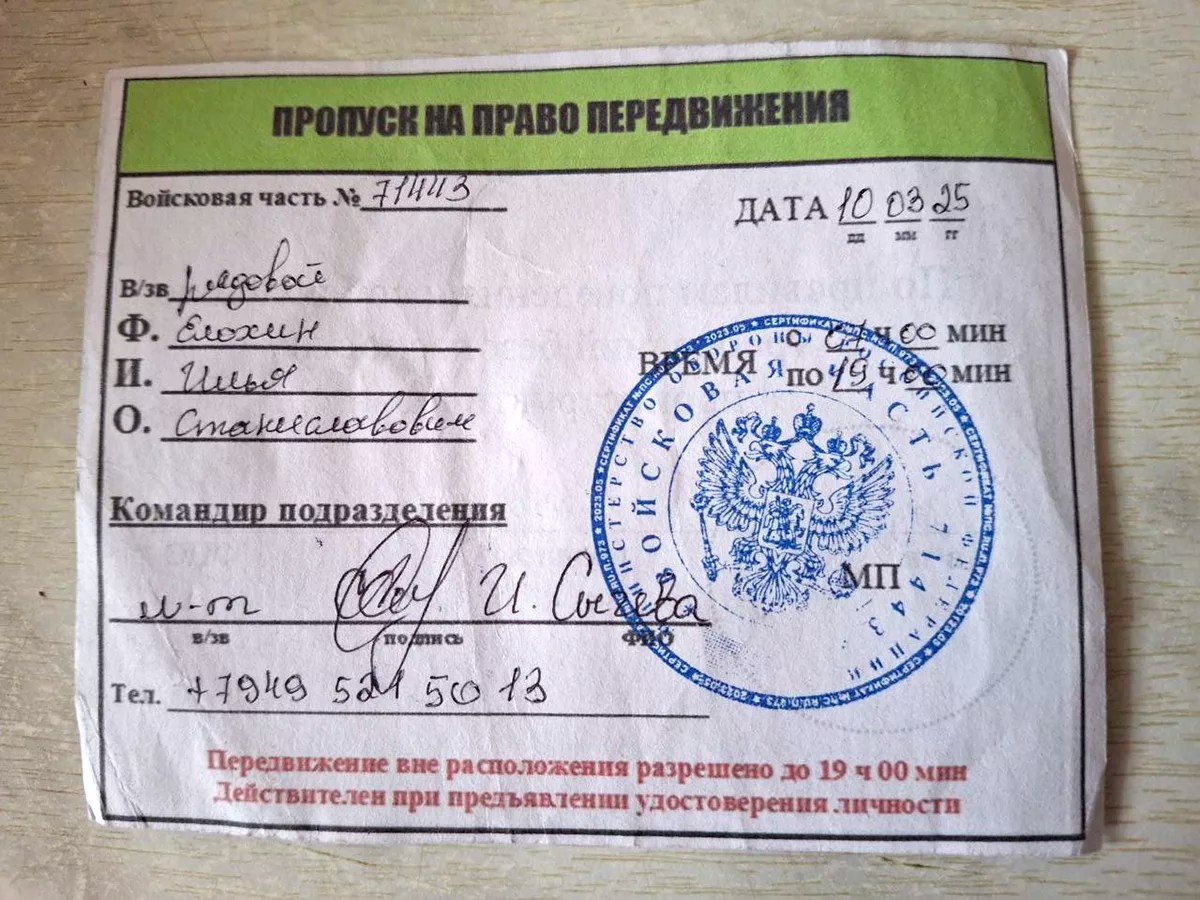 ПРОПУСК НА ПРАВО ПЕРЕДВИЖЕНИЯ
Войсковая часть № 71443
ДАТА 10 03 25
дд мм гг
В/зв рядовой
Ф. Елохин
И. Илья
О. Станиславович
ВРЕМЯ с 07 ч 00 мин
по 19 ч 00 мин
Командир подразделения
И. Сычева
в/зв подпись ФИО
МП
Тел. +7949 521 50 13
Передвижение вне расположения разрешено до 19 ч 00 мин
Действителен при предъявлении удостоверения личности
МИНИСТЕРСТВО ОБОРОНЫ РОССИЙСКОЙ ФЕДЕРАЦИИ
ВОЙСКОВАЯ ЧАСТЬ 71443